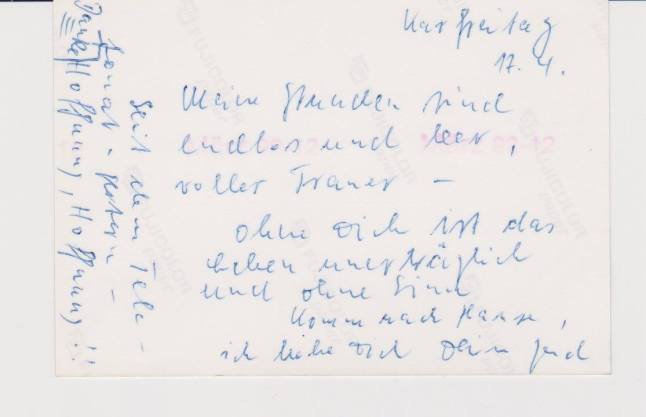 Karfreitag
17.4.
Meine Stunden sind
endlos und leer,
voller Trauer –
ohne Dich ist das
Leben unerträglich
und ohne Sinn
Komm nach Hause,
ich liebe Dich Dein
Seit dem Tele-
fonat gestern –
Hoffnung, Hoffnung!!
Danke
FUJICOLOR